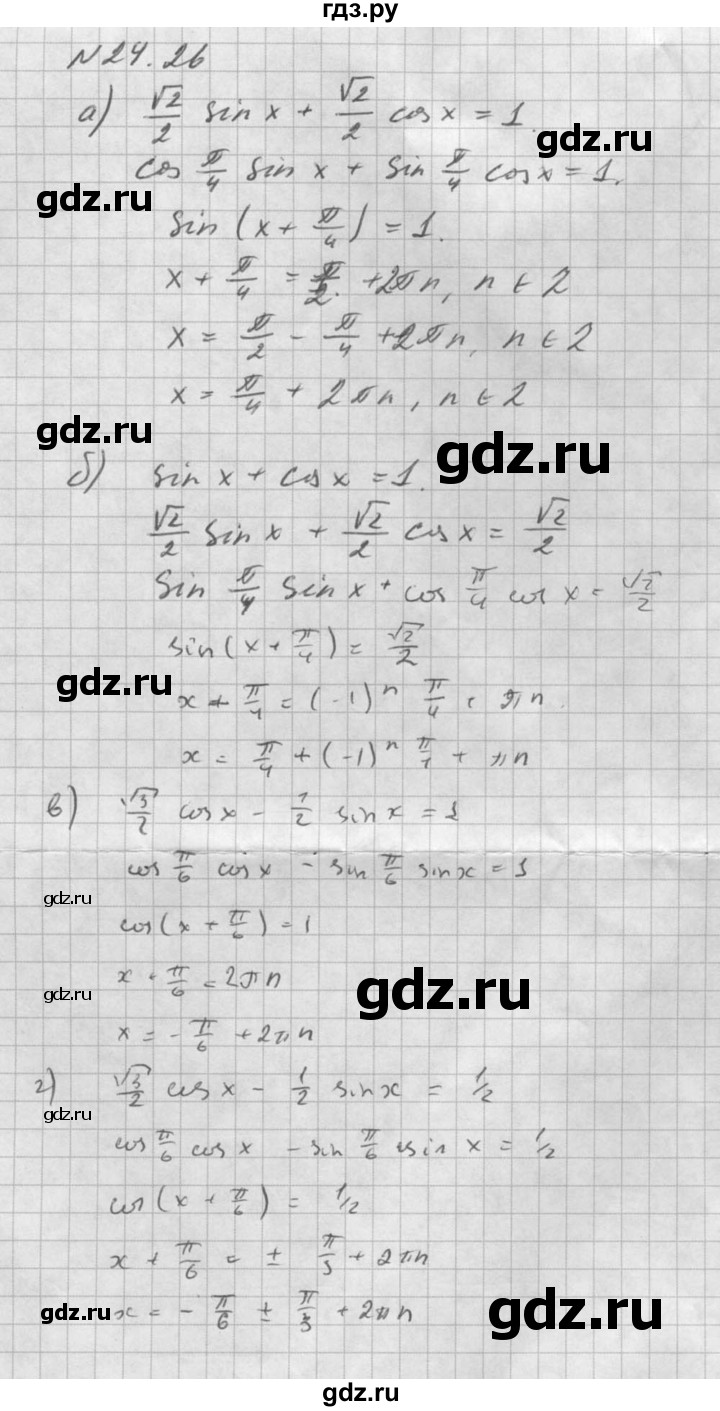 гдз.ру
N24.26
а) √2/2 sin x + √2/2 cos x = 1.
gdz.ru
cos π/4 sin x + sin π/4 cos x = 1.
gdz.ru
sin (x + π/4) = 1.
x + π/4 = π/2 + 2πn, n ∈ Z
x = π/2 - π/4 + 2πn, n ∈ Z
x = π/4 + 2πn, n ∈ Z
gdz.ru
gdz.ru
б) sin x + cos x = 1.
√2/2 sin x + √2/2 cos x = √2/2
sin π/4 sin x + cos π/4 cos x = √2/2
sin(x + π/4) = √2/2
gdz.ru
x + π/4 = (-1)ⁿ π/4 + πn.
x = π/4 + (-1)ⁿ π/4 + πn
в) √3/2 cos x - 1/2 sin x = 1
cos π/6 cos x - sin π/6 sin x = 1
gdz.ru
cos(x + π/6) = 1
x + π/6 = 2πn
gdz.ru
gdz.ru
x = - π/6 + 2πn
г) √3/2 cos x - 1/2 sin x = 1/2
gdz.ru
cos π/6 cos x - sin π/6 sin x = 1/2
cos(x + π/6) = 1/2
x + π/6 = ± π/3 + 2πn
x = - π/6 ± π/3 + 2πn
gdz.ru
gdz.ru
gdz.ru